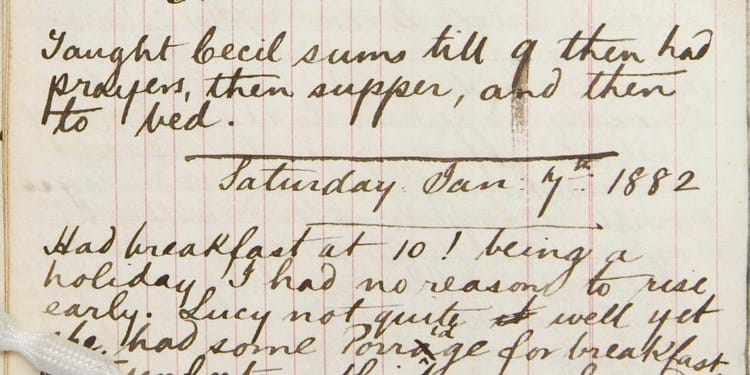 Taught Cecil sums till 9 then had
prayers, then supper, and then
to bed.
Saturday Jan: 7th: 1882
Had breakfast at 10! being a
holiday I had no reason to rise
early. Lucy not quite well yet
she had some Porridge for breakfast